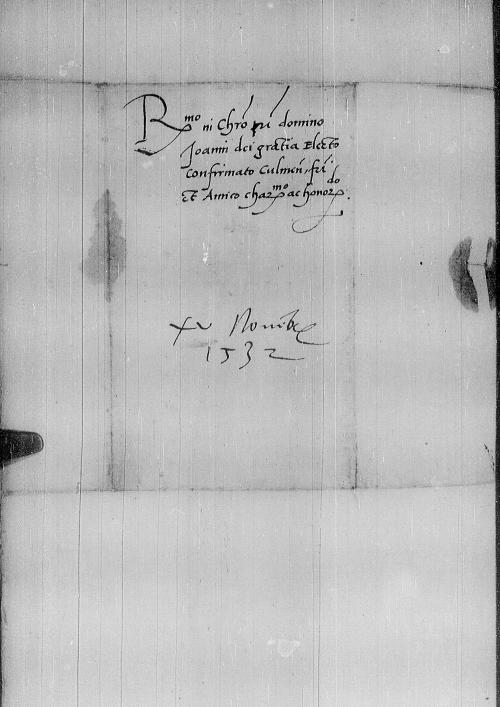 Rmo ni Chro pri domino
Joanni dei gratia Electo
Confirmato Culmen, fri
Et Amico charmo ac honordo.
xv Novẽb
1532